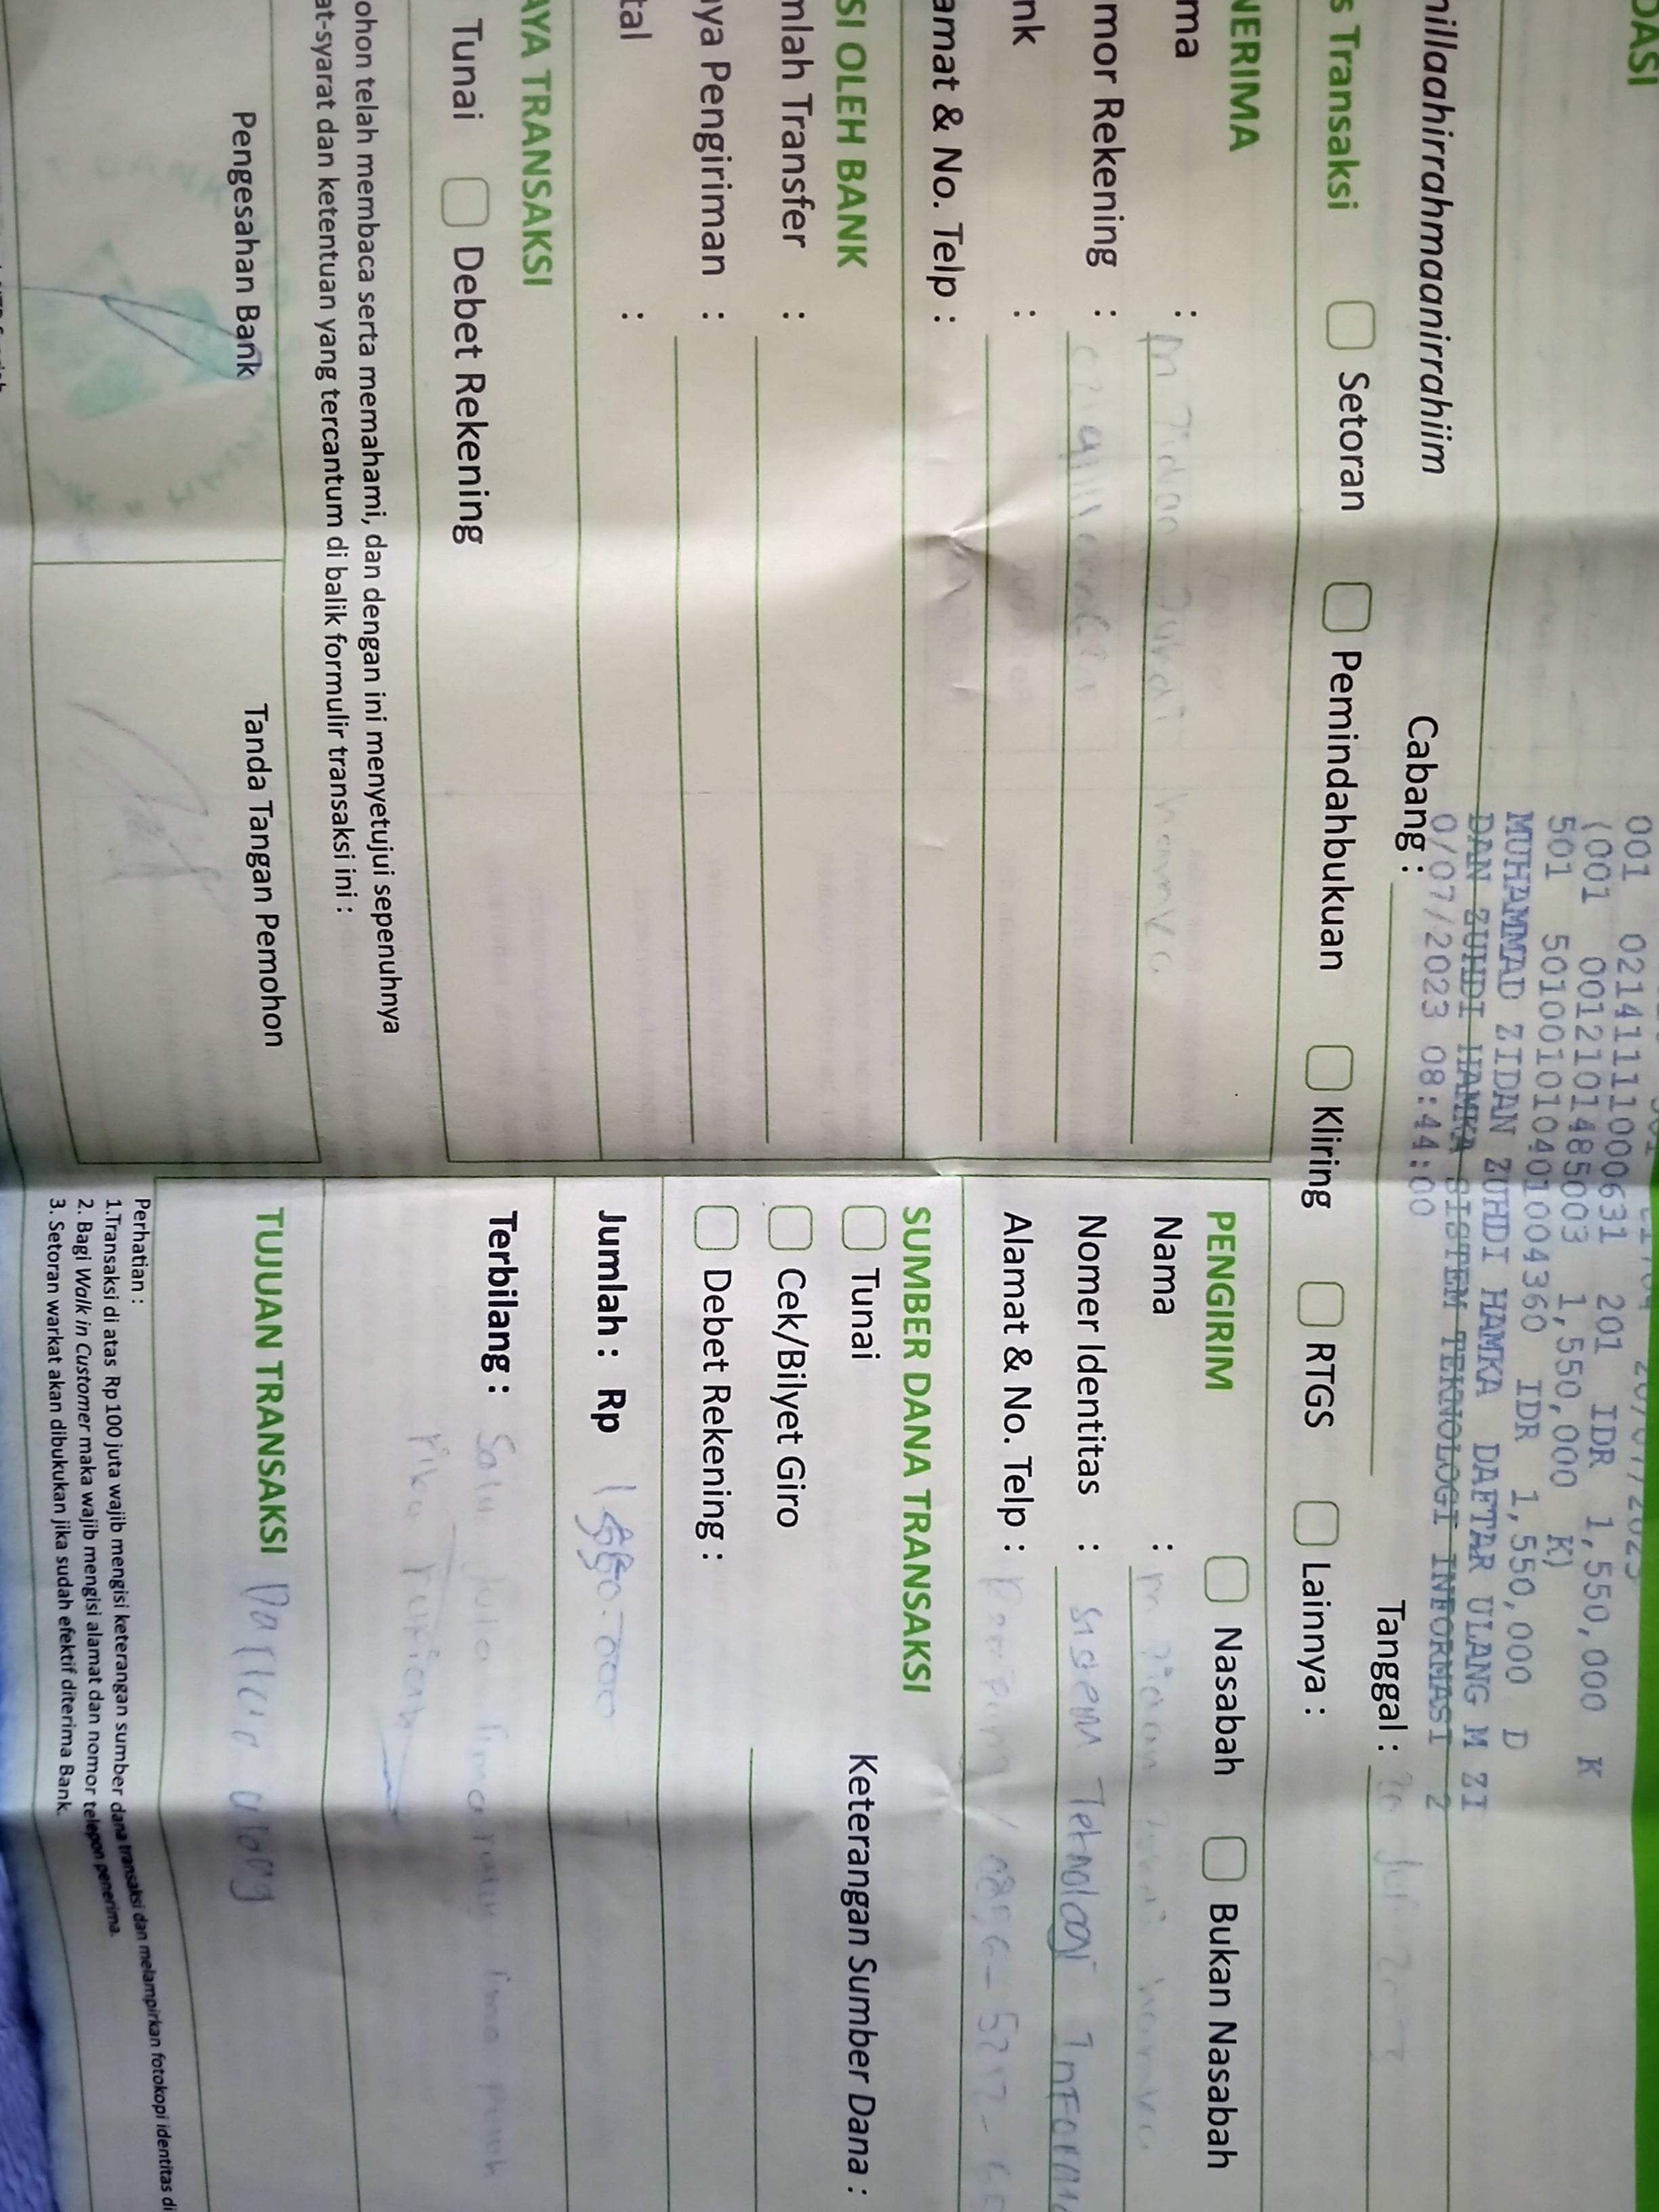 DASI
20/07/2023
001 02141111000631 201 IDR 1,550,000 K
(001 0012101485003 1,550,000 K)
501 5010010104010043​60 IDR 1,550,000 D
MUHAMMAD ZIDAN ZUHDI HAMKA DAFTAR ULANG M ZI
DAN ZUHDI HAMKA SISTEM TEKNOLOGI INFORMASI 2
0/07/2023 08:44:00
nillaahirrahmaanirrahiim
Cabang :
Tanggal : 20 Juli 2023
s Transaksi
Setoran
Pemindahbukuan
Kliring
RTGS
Lainnya :
NERIMA
ma : M Zidan Zuhdi hamka
mor Rekening :
nk :
amat & No. Telp :
PENGIRIM
Nasabah
Bukan Nasabah
Nama : M Zidan Zuhdi hamka
Nomer Identitas : Sistem Teknologi Informa
Alamat & No. Telp :
SI OLEH BANK
mlah Transfer :
ya Pengiriman :
tal :
SUMBER DANA TRANSAKSI
Tunai
Keterangan Sumber Dana :
Cek/Bilyet Giro
Debet Rekening :
AYA TRANSAKSI
Tunai
Debet Rekening
Jumlah : Rp
Terbilang : Satu Juta lima ratus lima puluh
ribu rupiah
ohon telah membaca serta memahami, dan dengan ini menyetujui sepenuhnya
at-syarat dan ketentuan yang tercantum di balik formulir transaksi ini :
Pengesahan Bank
Tanda Tangan Pemohon
TUJUAN TRANSAKSI Daftar Ulang
Perhatian :
1.Transaksi di atas Rp100 juta wajib mengisi keterangan sumber dana transaksi dan melampirkan fotokopi identitas di
2. Bagi Walk in Customer maka wajib mengisi alamat dan nomor telepon penerima.
3. Setoran warkat akan dibukukan jika sudah efektif diterima Bank.